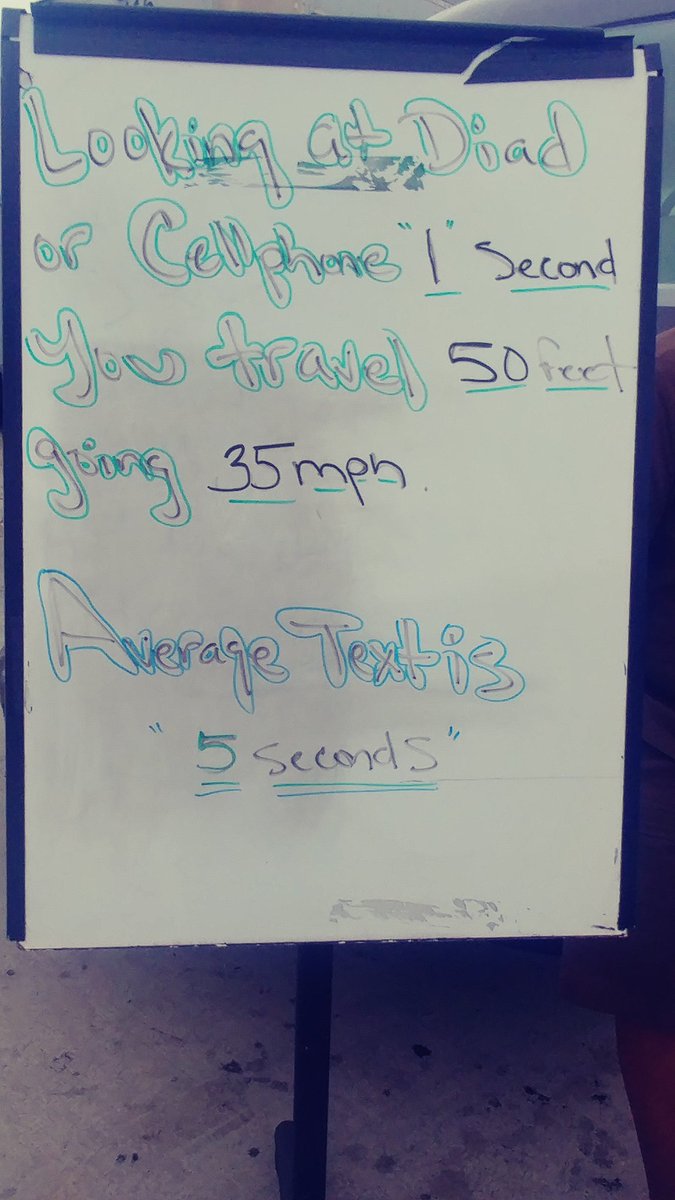 Looking at Diad
or Cellphone "1" Second
You travel 50 feet
going 35mph.
Average Text is
"5 seconds"